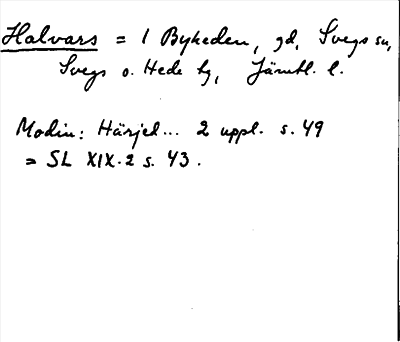 Halvars = 1 Byheden, gd, Svegs sn,
Svegs o. Hede tg, Jämtl. l.
Modin: Härjed... 2 uppl. s. 49
= SL XIX.2 s. 43.